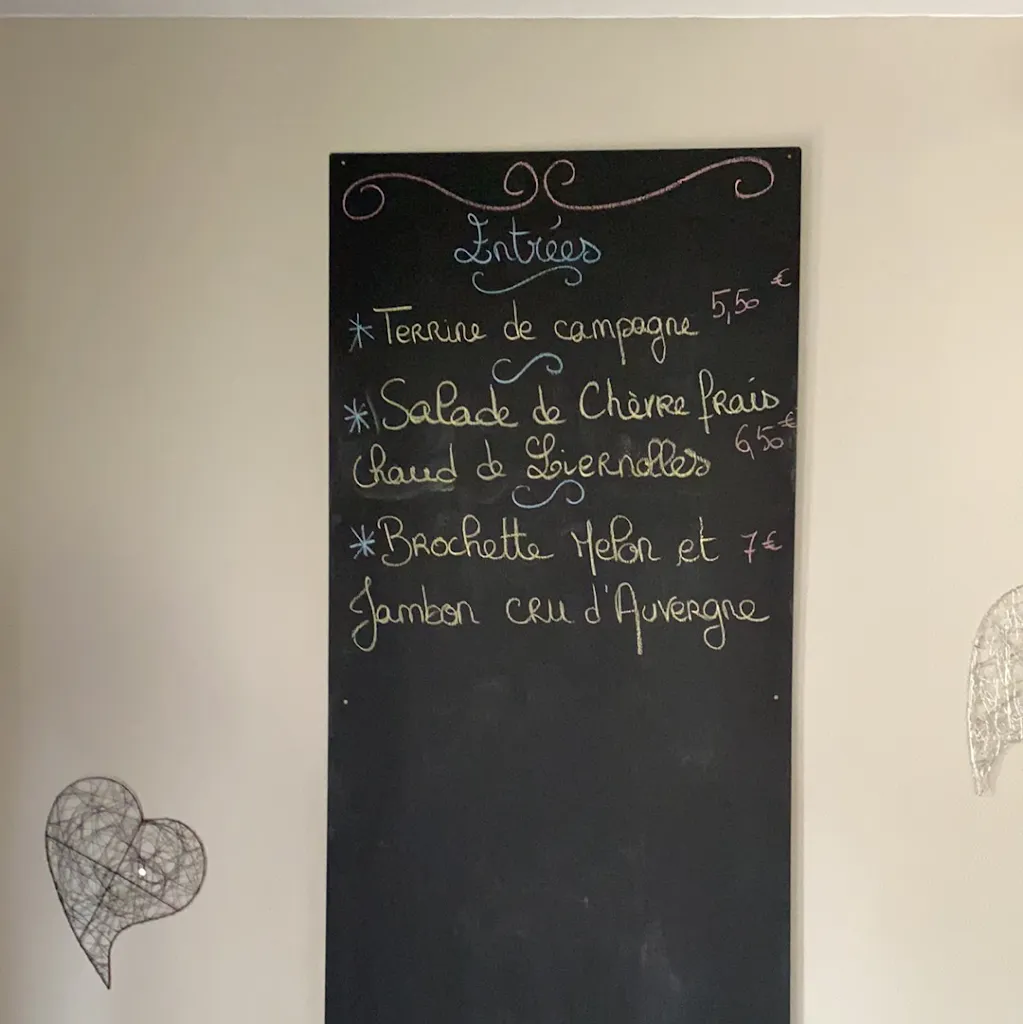 Entrées
*Terrine de campagne 5,50 €
*Salade de Chèvre frais
chaud de Liernolles 6,50 €
*Brochette Melon et 7 €
Jambon cru d'Auvergne